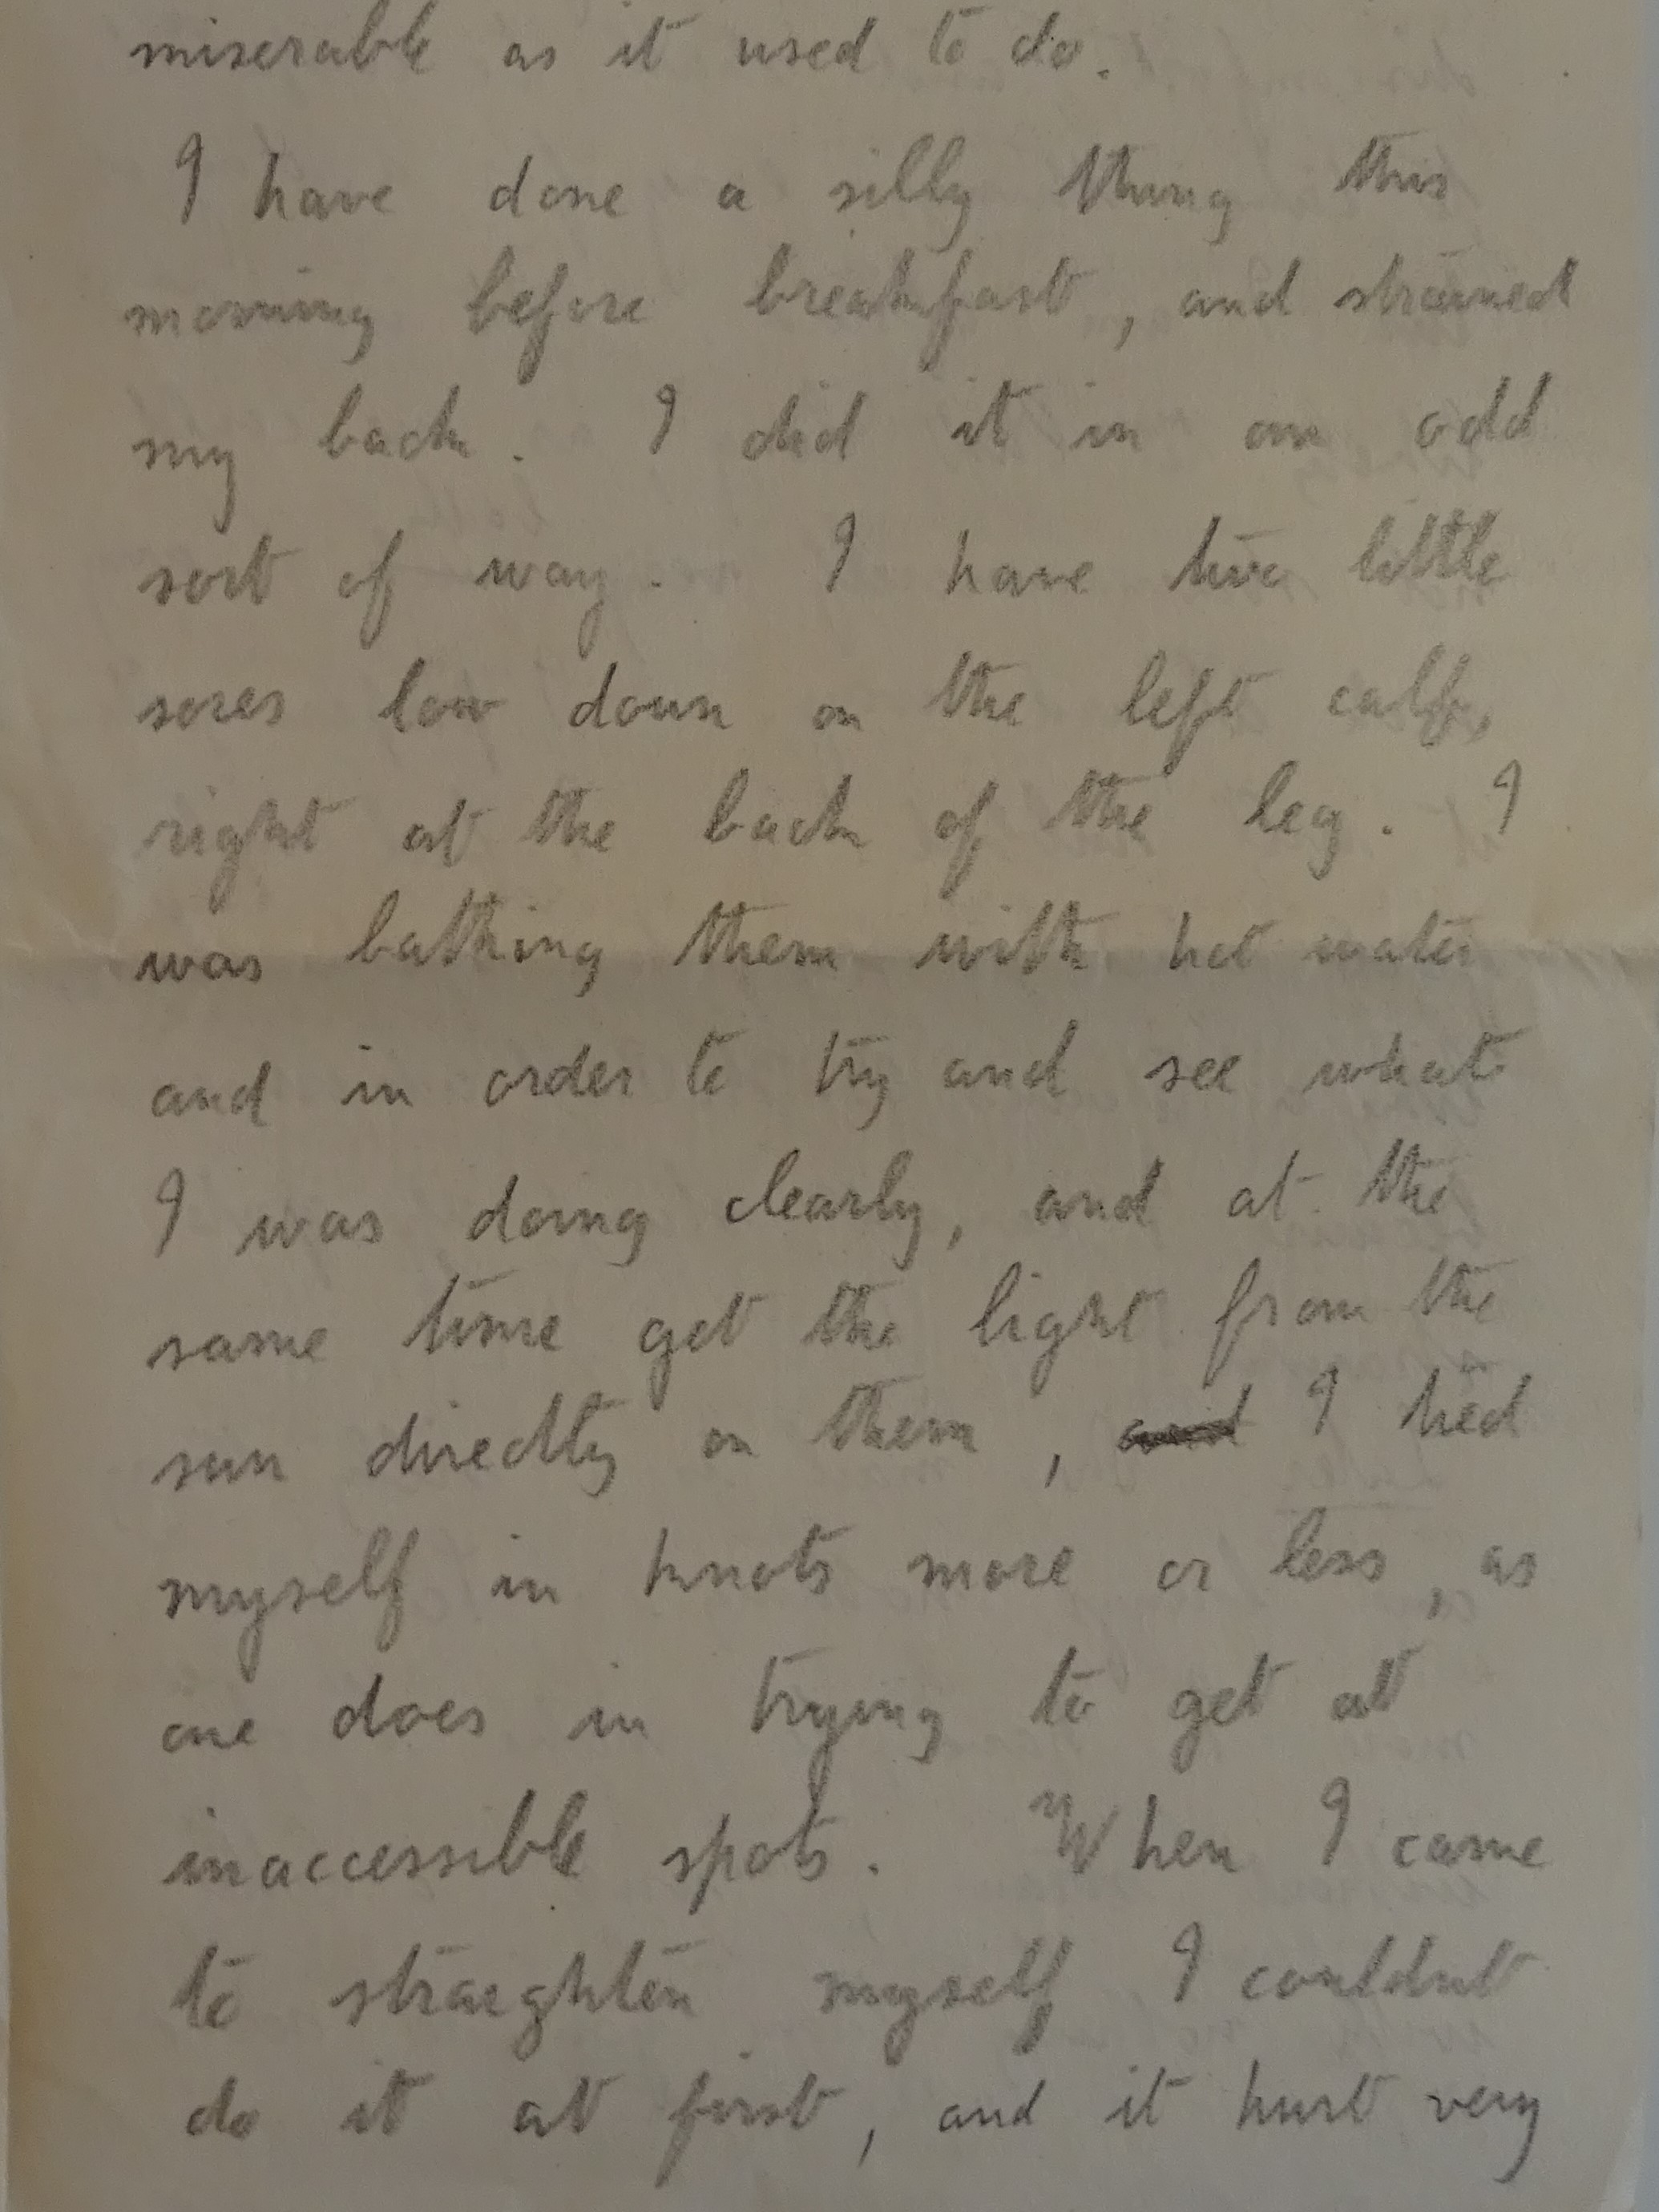 miserable as it used to do.
I have done a silly thing this
morning before breakfast, and strained
my back. I did it in an odd
sort of way. I have two little
sores low down on the left calf,
right at the back of the leg. I
was bathing them with hot water
and in order to try and see what
I was doing clearly, and at the
same time get the light from the
sun directly on them, and I tied
myself in knots more or less, as
one does in trying to get at
inaccessible spots. When I came
to straighten myself I couldnt
do it at first, and it hurt very